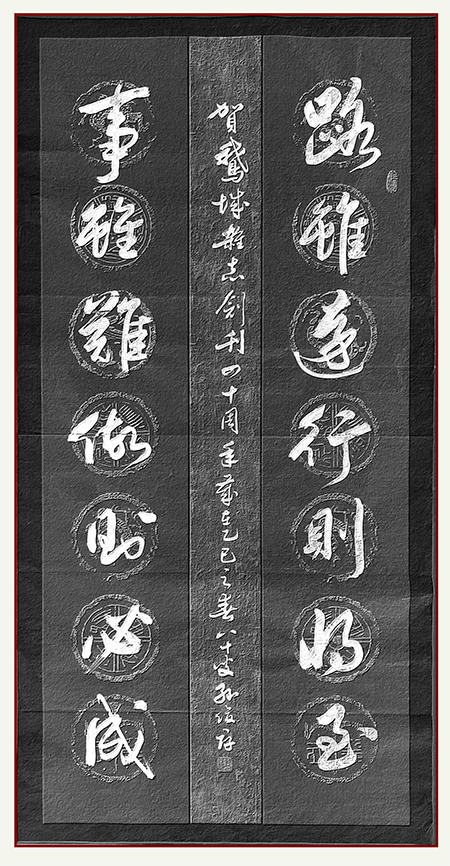 路雖遠行則將至
賀鵝城雜志創刊四十周年歲在乙巳之春八十叟孫
事雖難做則必成